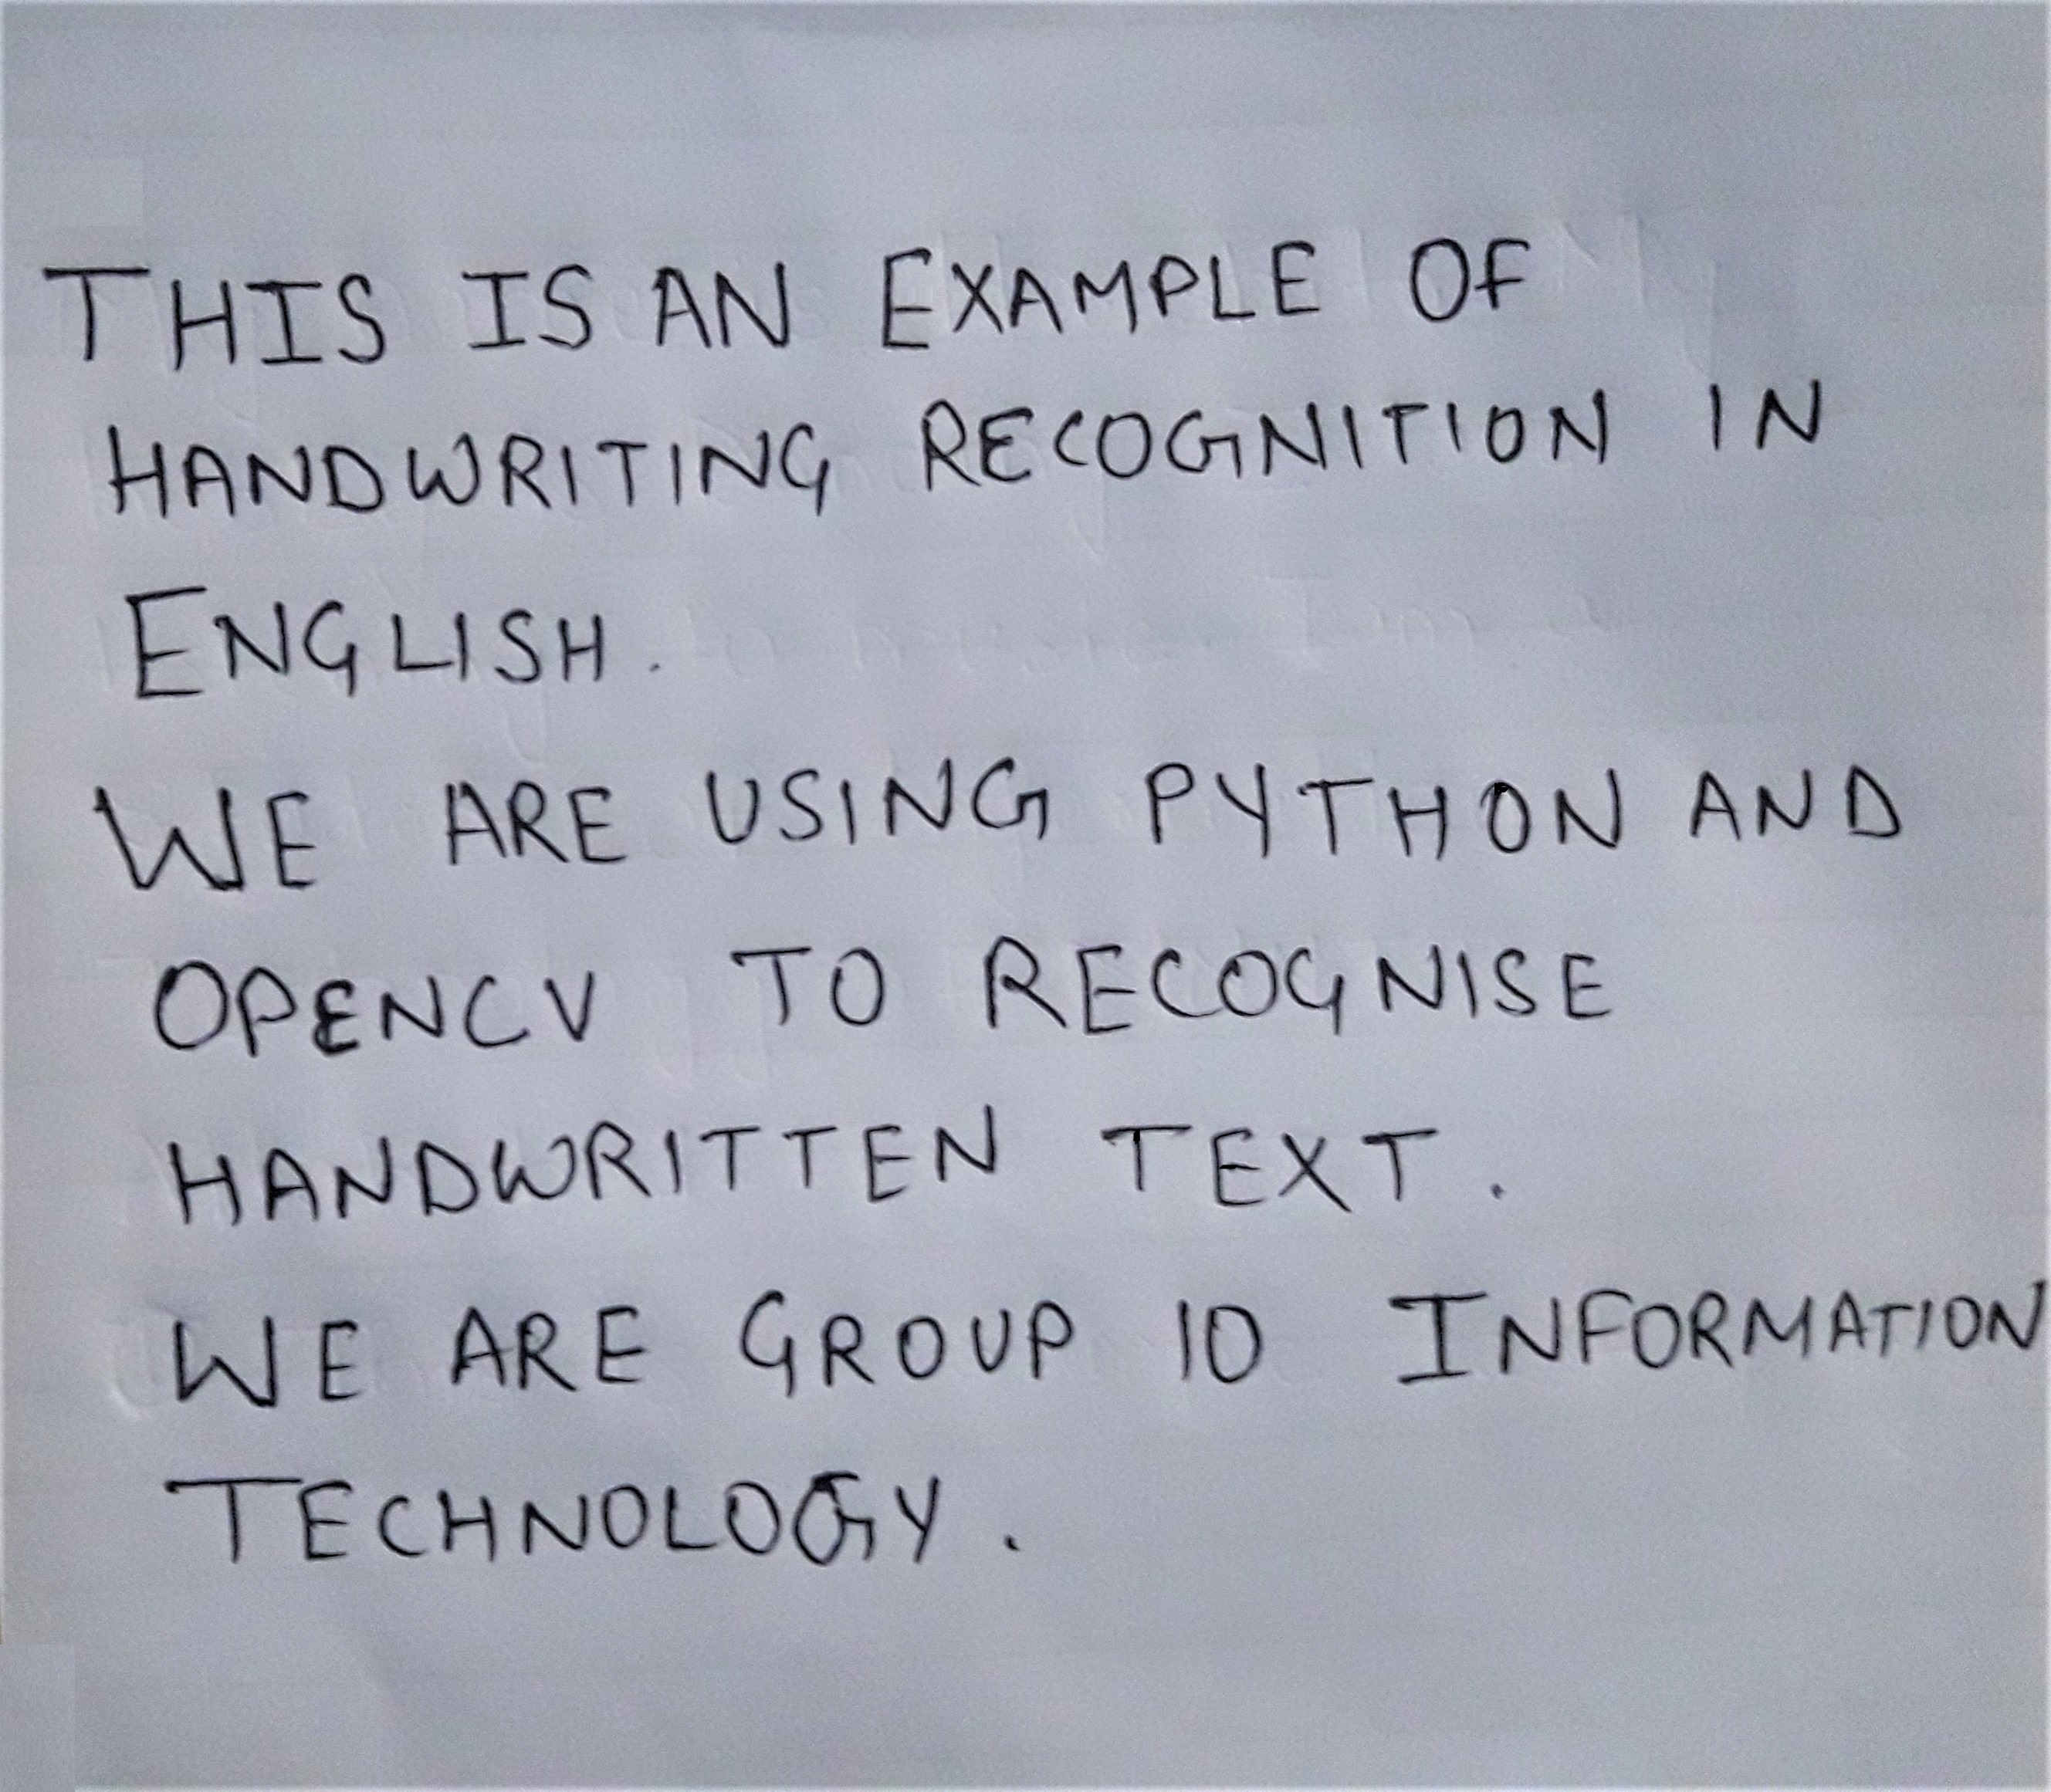 THIS IS AN EXAMPLE OF
HANDWRITING RECOGNITION IN
ENGLISH.
WE ARE USING PYTHON AND
OPENCV TO RECOGNISE
HANDWRITTEN TEXT.
WE ARE GROUP 10 INFORMATION
TECHNOLOGY.